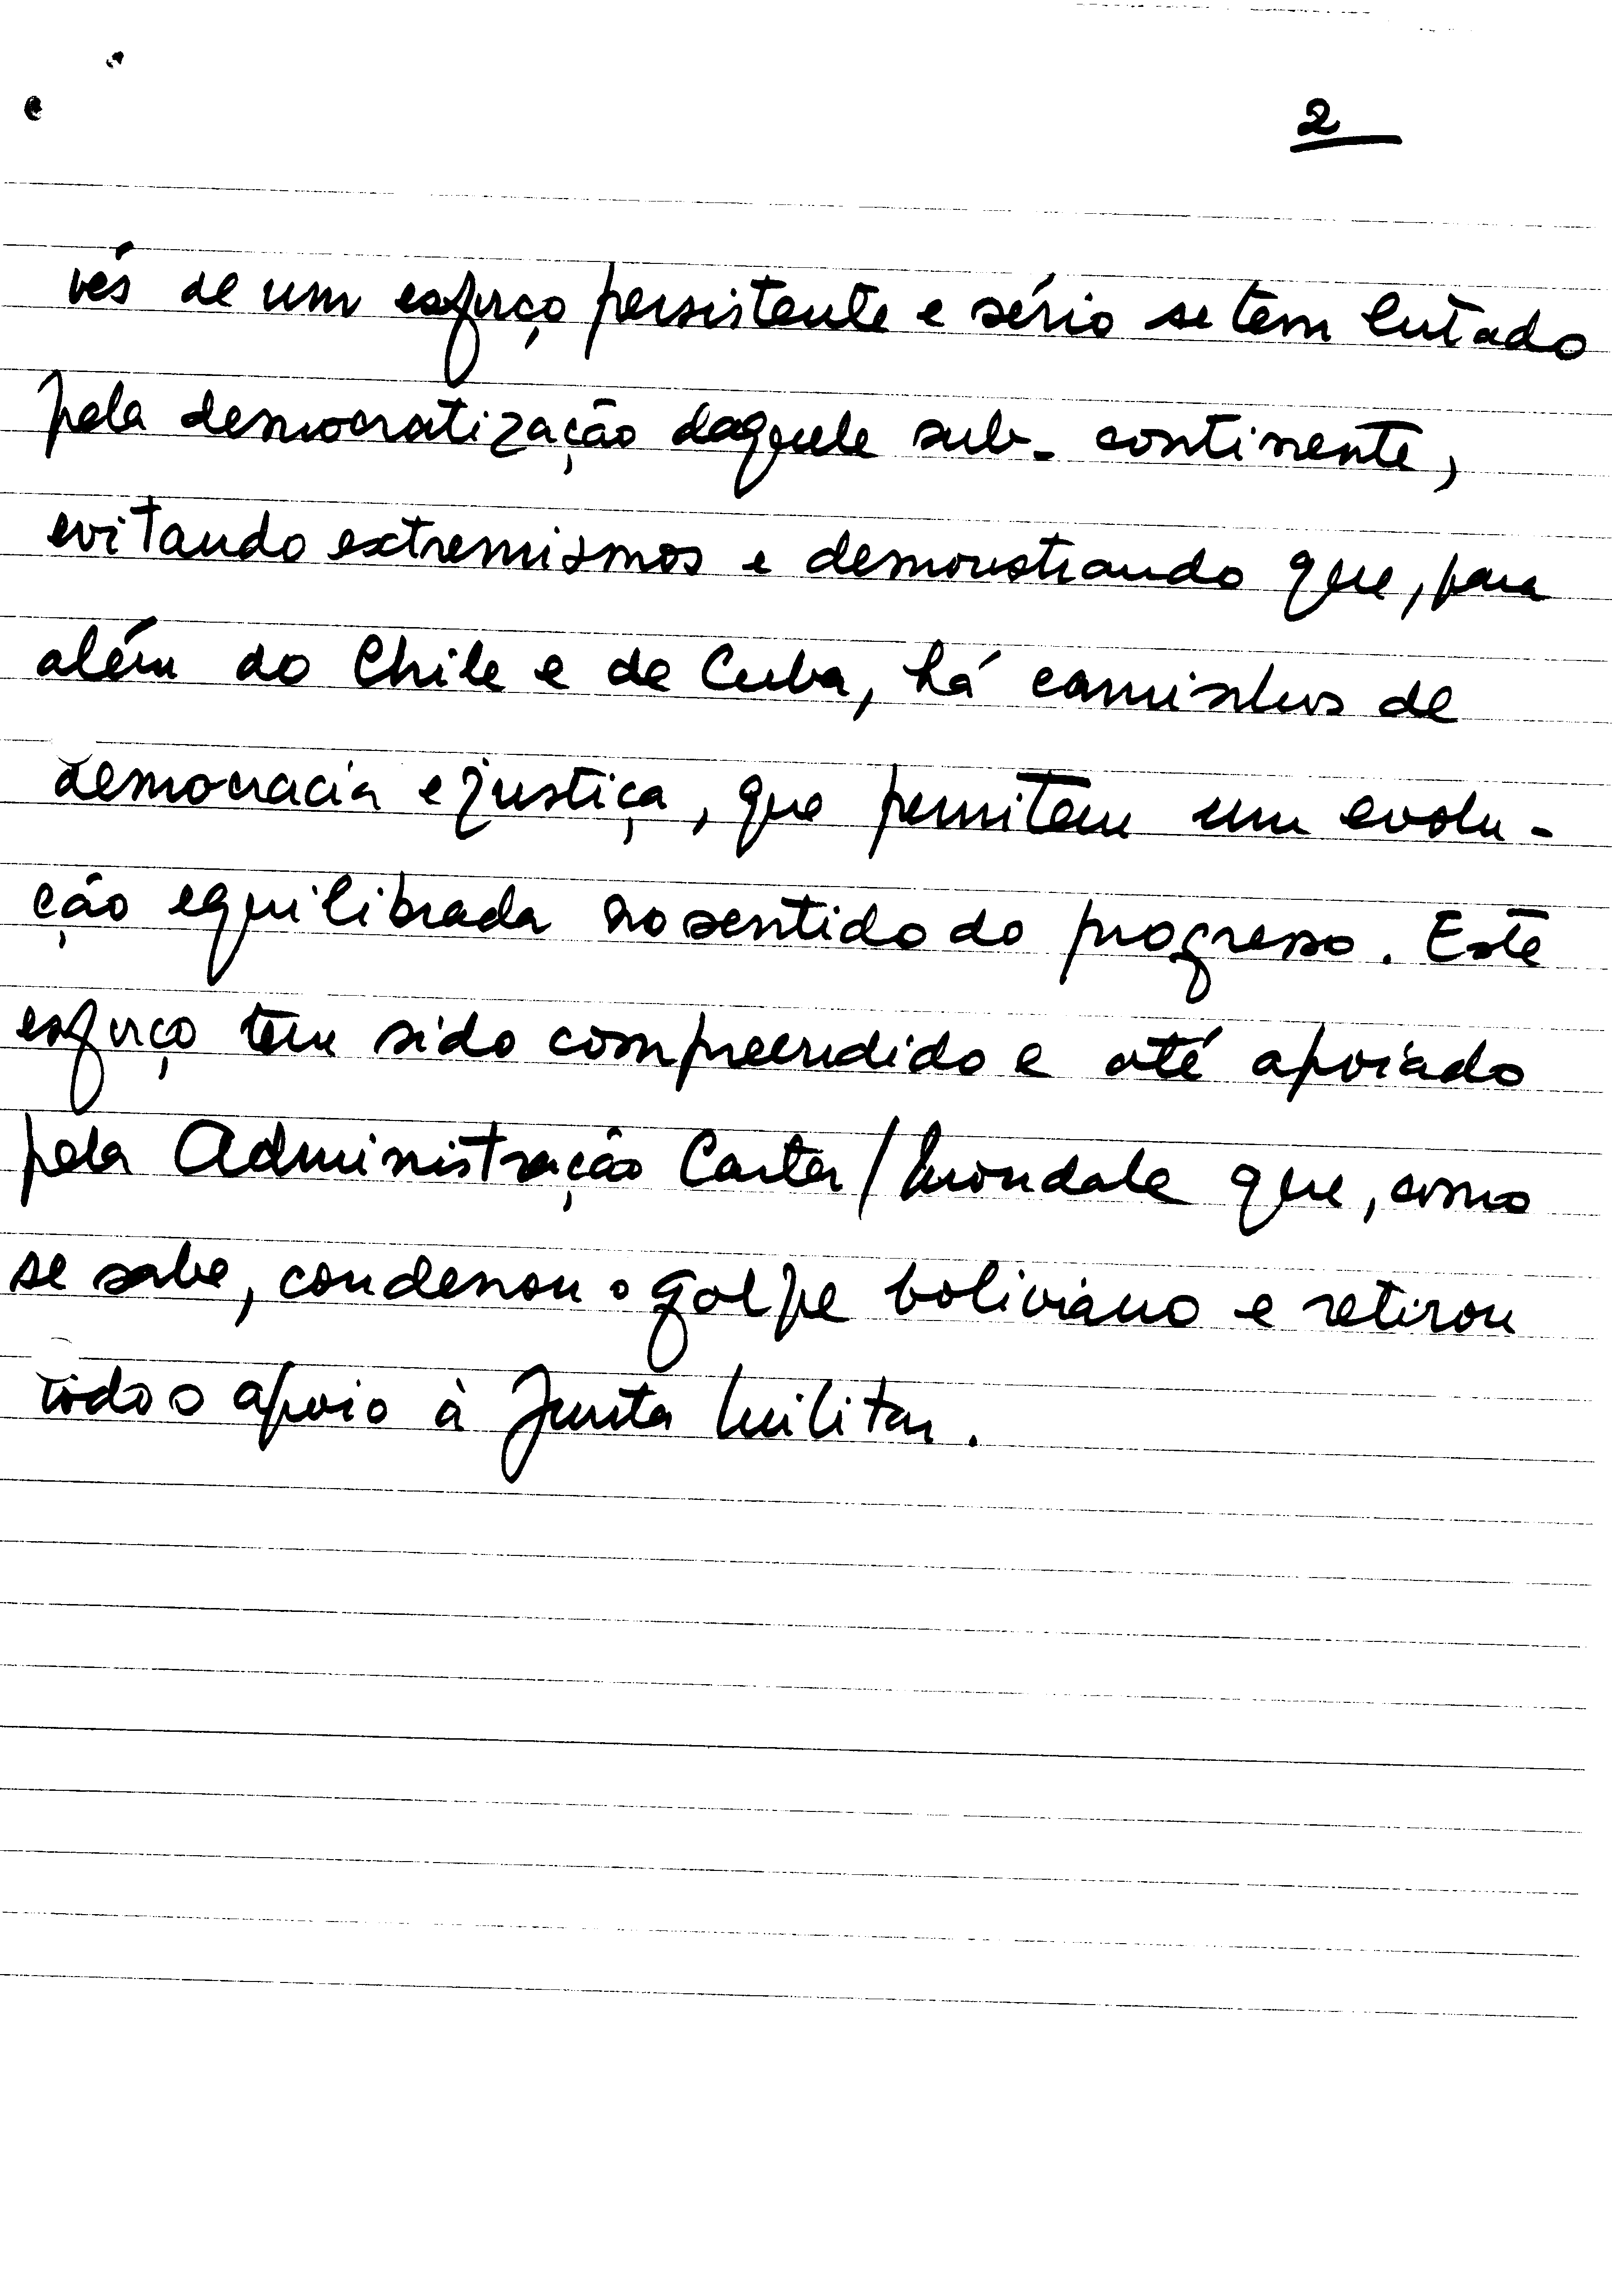 2
vés de um esforço persistente e sério se tem lutado
pela democratização daquele sub-continente,
evitando extremismos e demonstrando que, para
além do Chile e de Cuba, há caminhos de
democracia e justiça, que permitem um evolu-
ção equilibrada no sentido do progresso. Este
esforço tem sido compreendido e até apoiado
pela Administração Carter/Mondale que, como
se sabe, condenou o golpe boliviano e retirou
todo o apoio à Junta Militar.